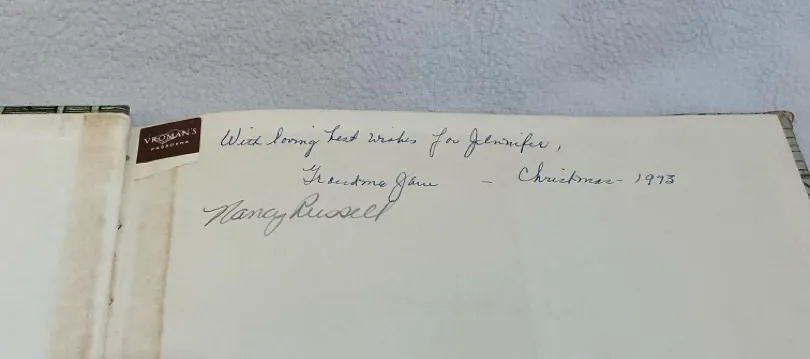 VROMAN'S
PASADENA
With loving best wishes for Jennifer,
Grandma Jane - Christmas - 1973
Nancy Russell